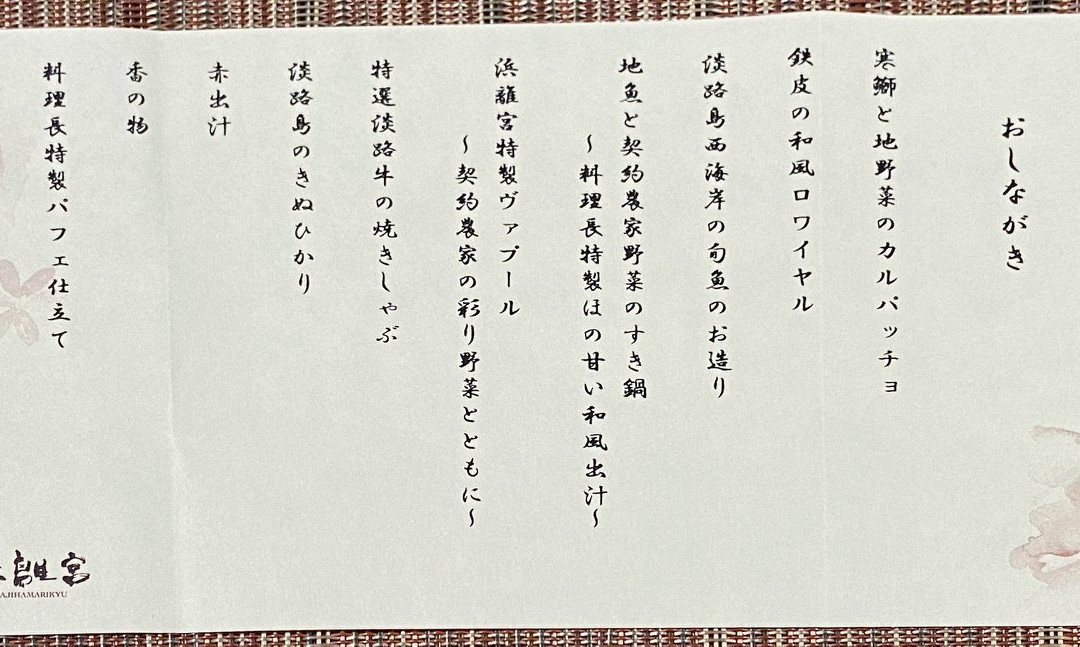 おしながき
寒鰤と地野菜のカルパッチョ
鉄皮の和風ロワイヤル
淡路島西海岸の旬魚のお造り
地魚と契約農家野菜のすき鍋
～料理長特製ほの甘い和風出汁～
浜離宮特製ヴァプール
～契約農家の彩り野菜とともに～
特選淡路牛の焼きしゃぶ
淡路島のきぬひかり
赤出汁
香の物
料理長特製パフェ仕立て
離宮
AJIHAMARIKYU